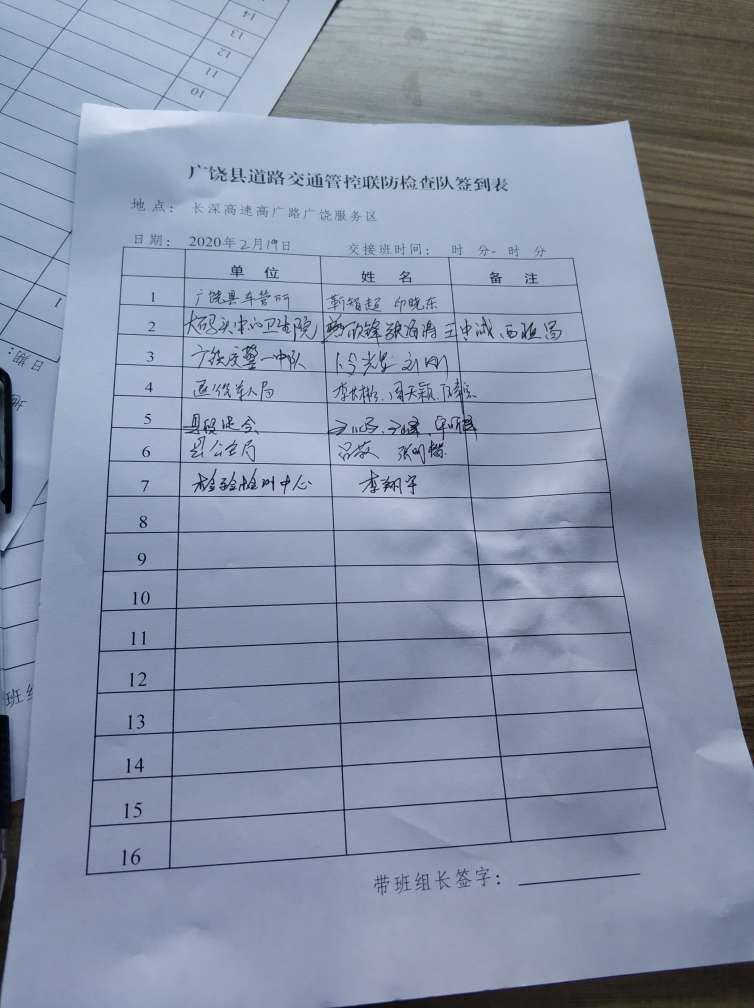 14
13
12
11
10
1
日期:
班组
广饶县道路交通管控联防检查队签到表
地点: 长深高速高广路广饶服务区
日期: 2020年2月19日 交接班时间: 时 分- 时 分
单 位 姓 名 备 注
1 广饶县车管所 靳智超 印晓东
2 大码头中心卫生院 王中诚
3 广饶交警一中队 刘刚
4 退役军人局 李长彬 周天颖
5
6 县公安局 吕敬
7 检验检测中心 李翔宇
8
9
10
11
12
13
14
15
16
带班组长签字: